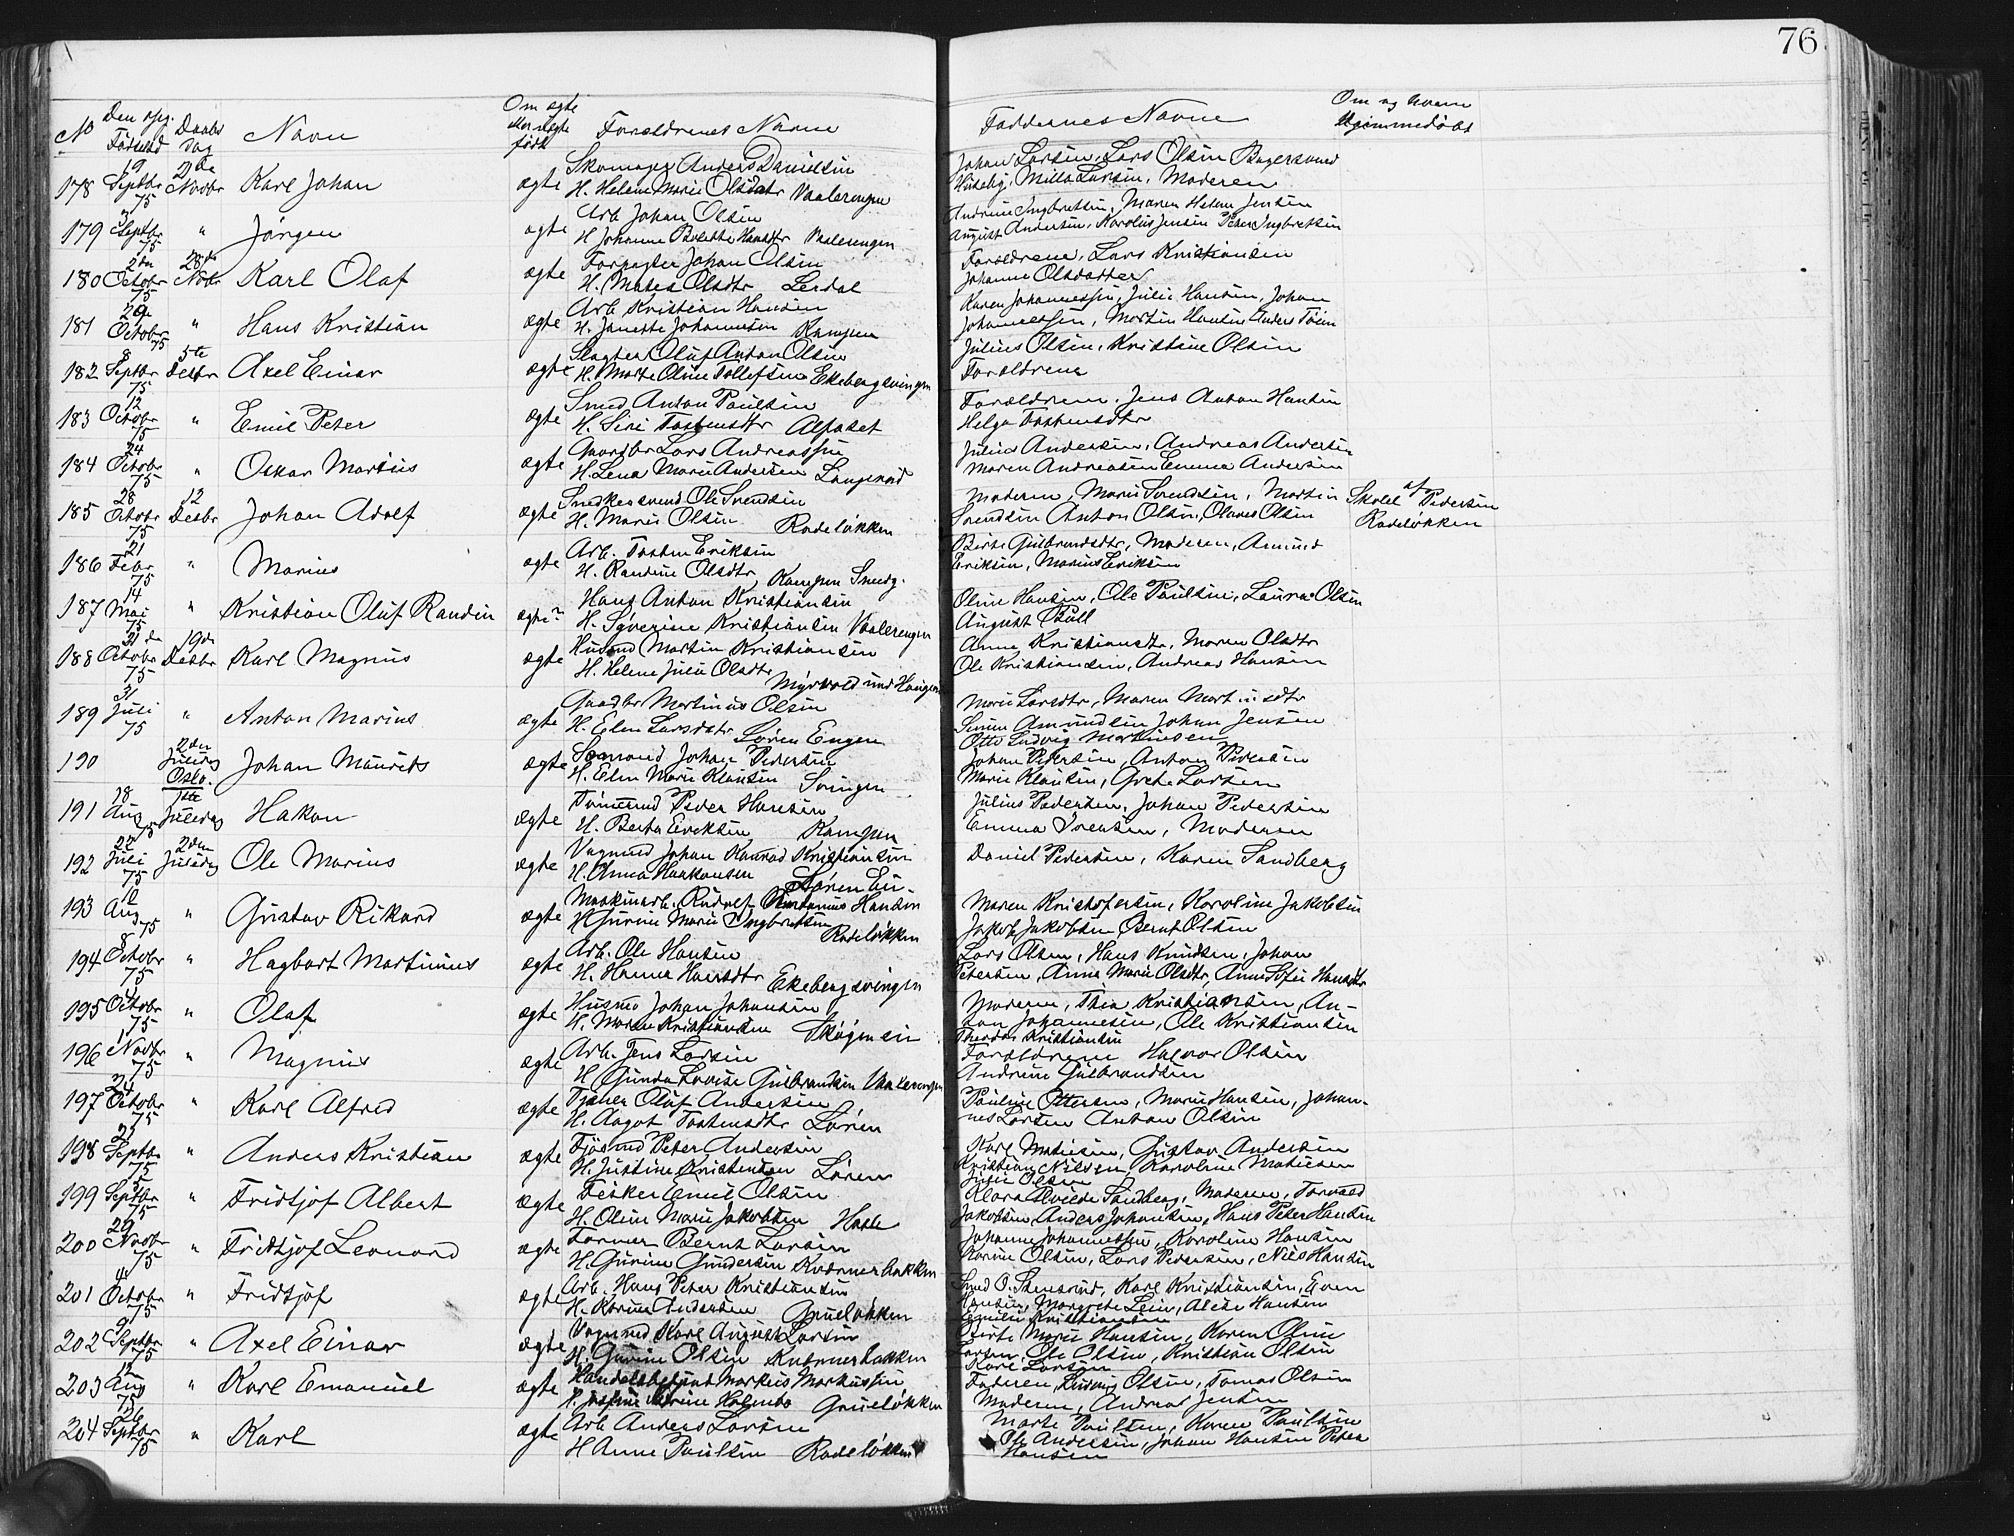 76
No
Den opg. Fødested
Daabs Dag
Navn
Om ægte eller uægte født
Forældrenes Navne
Faddernes Navne
Om og hvem hjemmedøbt
178 19 Septbr 75 21de Novbr Karl Johan ægte Skomager Anders Danielsen
H. Helene Marie Olsdatr Vaalerengen
Johan Larsen, Lars Olsen Bagersvend
Huseby, Milla Larsen, Moderen
179 3 Septbr 75 " Jörgen ægte Arb. Johan Olsen
H. Johanne Bolette Hansdtr Vaalerengen
Andrine Ingbretsen, Maren Helene Jensen
August Andersen, Karolius Jensen Peter Ingbretsen
180 2den Octobr 75 28de Nobr Karl Olaf ægte Forpagter Johan Olsen
H. Matea Olsdtr Lerdal
Forældrene, Lars Kristiansen
Johanne Olsdatter
181 29 Octobr 75 " Hans Kristian ægte Arb. Kristian Hansen
H. Janette Johannesen Kampen
Karen Johannessen, Julie Hansen, Johan
Johannessen, Martin Hansen Anders Toien
182 8 Septbr 75 5te Desbr Axel Einar ægte Slagter Oluf Anton Olsen
H. Marte Oline Tollefsen Ekebergsvingen
Julius Olsen, Kristine Olsen
Forældrene
183 12 Octobr 75 " Emil Peter ægte Smed Anton Paulsen
H. Siri Tostensdtr Alfaset
Forældrene, Jens Anton Hansen
Helga Tostensdtr
184 24 Octobr 75 " Oskar Martius ægte Gaardbr Lars Andreassen
H. Lena Marie Andersen Langerud
Julius Andersen, Andreas Andersen
Maren Andreasen Emma Andersen
185 28 Octobr 75 12 Desbr Johan Adolf ægte Snedkersvend Ole Svendsen
H. Marie Olsen Rodeløkken
Moderen, Marie Svendsen, Martin
Svendsen Anton Olsen, Olaves Olsen
Skolel af Pedersen
Rodeløkken
186 21 Febr 75 " Marius ægte Arb. Tosten Eriksen
H. Randine Olsdtr Kampen Smedg.
Berte Gulbrandsdtr, Moderen, Amund
Eriksen, Marius Eriksen
187 14 Mai 75 " Kristian Oluf Randin ægte? Hans Anton Kristiansen
H. Syverine Kristiansen Vaalerengen
Oline Hansen, Ole Paulsen, Laura Olsen
August Bull
188 31 Octobr 75 19de Desbr Karl Magnus ægte Husmd Martin Kristiansen
H. Helene Julie Olsdtr Myrvold und Haugen
Anne Kristiansdtr, Maren Olsdtr
Ole Kristiansen, Andreas Hansen
189 31 Juli 75 " Anton Marius ægte Gaadbr Martinius Olsen
H. Elen Larsdatr Søren Engen
Marie Larsdtr, Maren Martinsdtr
Simen Amundsen Johan Jensen
Otto Ludvig Martinsen
190 2den Juledag Oslo. Johan Maurits ægte Sømand Johan Pedersen
H. Elen Marie Klausen Svingen
Johan Pedersen, Anton Pedersen
Marie Klausen, Grete Larsen
191 18 Aug 75 1ste Juledag Hakon ægte Tømmermd Peder Hansen
H. Berta Eriksen Kampen
Julius Pedersen, Johan Pedersen
Emma Iversen, Moderen
192 22 Juli 75 2den Juledag Ole Marius ægte Vognmd Johan Konrad Kristiansen
H. Anna Haakonsen Søren En-
Daniel Pedersen, Karen Sandberg
193 12 Aug 75 " Gustav Rikard ægte Maskinarb. Rudolf Antonius Hansen
H. Gurine Marie Ingbretsen Rodeløkken
Maren Kristofersen, Karoline Jakobsen
Jakob Jakobsen, Bernt Olsen
194 8 Octobr 75 " Hagbart Martinius ægte Arb. Ole Hansen
H. Hanna Hansdtr Ekebergsvingen
Lars Olsen, Hans Knudsen, Johan
Petersen, Anne Marie Olsdtr, Anne Sofie Hansdtr
195 Octobr 75 " Olaf ægte Husmd Johan Johansen
H. Maren Kristiansen Skøyensein
Moderen, Thea Kristiansen, An-
ton Johannesen, Ole Kristiansen
Theodor Kristiansen
196 1 Novbr 75 " Magnus ægte Arb. Jens Larsen
H. Gunda Lovise Gulbrandsen Vaalerengen
Forældrene Halvor Olsen
Andrine Gulbrandsen
197 24 Octobr 75 " Karl Alfred ægte Tjener Oluf Andersen
H. Aagot Tostensdtr Løren
Pauline Ottersen, Marie Hansen, Johan-
nes Larsen Anton Olsen
198 Septbr 75 " Anders Kristian ægte Fjøsmd Peter Andersen
H. Justine Kristensen Løren
Karl Matiesen, Gustav Andersen
Kristian Nilsen Karoline Matiesen
Julie Olsen
199 5 Septbr 75 " Fridtjof Albert ægte Fisker Emil Olsen
H. Oline Marie Jakobsen Hasle
Klara Alvilde Sandberg, Moderen, Torvald
Jakobsen Anders Johansen, Hans Peter Hansen
200 29 Novbr 75 " Fridtjof Leonard ægte Former Bernt Larsen
H. Gurine Gundersen Kværnerbakken
Johanne Johannessen, Karoline Hansen
Karine Olsen, Lars Pedersen, Nils Hansen
201 4 Octobr 75 " Fridtjof ægte Arb. Hans Peter Kristiansen
H. Karine Andersen Grueløkken
Smed O. Stensrud, Karl Kristiansen, Even
Hansen, Margrete Lein, Alette Hansen
Emilie Kristiansen
202 9 Septbr 75 " Axel Einar ægte Vognmd Karl August Larsen
H. Gurine Olsen Kværnerbakken
Berte Marie Hansen, Karen Oline
Larsen Ole Olsen, Kristian Olsen
Karl Larsen
203 12 Aug 75 " Karl Emanuel ægte Handelsbetjent Markus Markussen
H. Josefine Holmbo Grueløkken
Faderen, Ludvig Olsen, Tomas Olsen
Moderen, Andreas Jensen
204 26 Septbr 75 " Karl ægte Arb Anders Larsen
H Anne Paulsen Rodeløkken
Marte Paulsen, Karen Paulsen
Ole Andersen, Johan Hansen Peter
Hansen